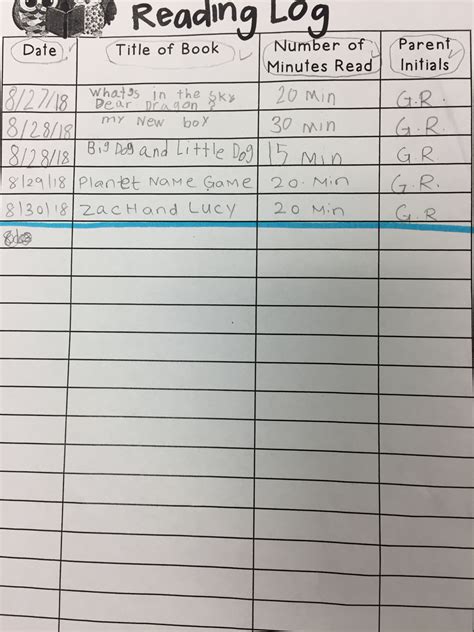 Reading Log
Date Title of Book Number of Minutes Read Parent Initials
8/27/18 What's in the sky Dear Dragon? 20 Min G.R.
8/28/18 my New boy 30 min G.R.
8/28/18 Big Dog and Little Dog 15 Min G R
8/29/18 Planet Name Game 20. Min G.R.
8/30/18 Zach and Lucy 20 Min G.R